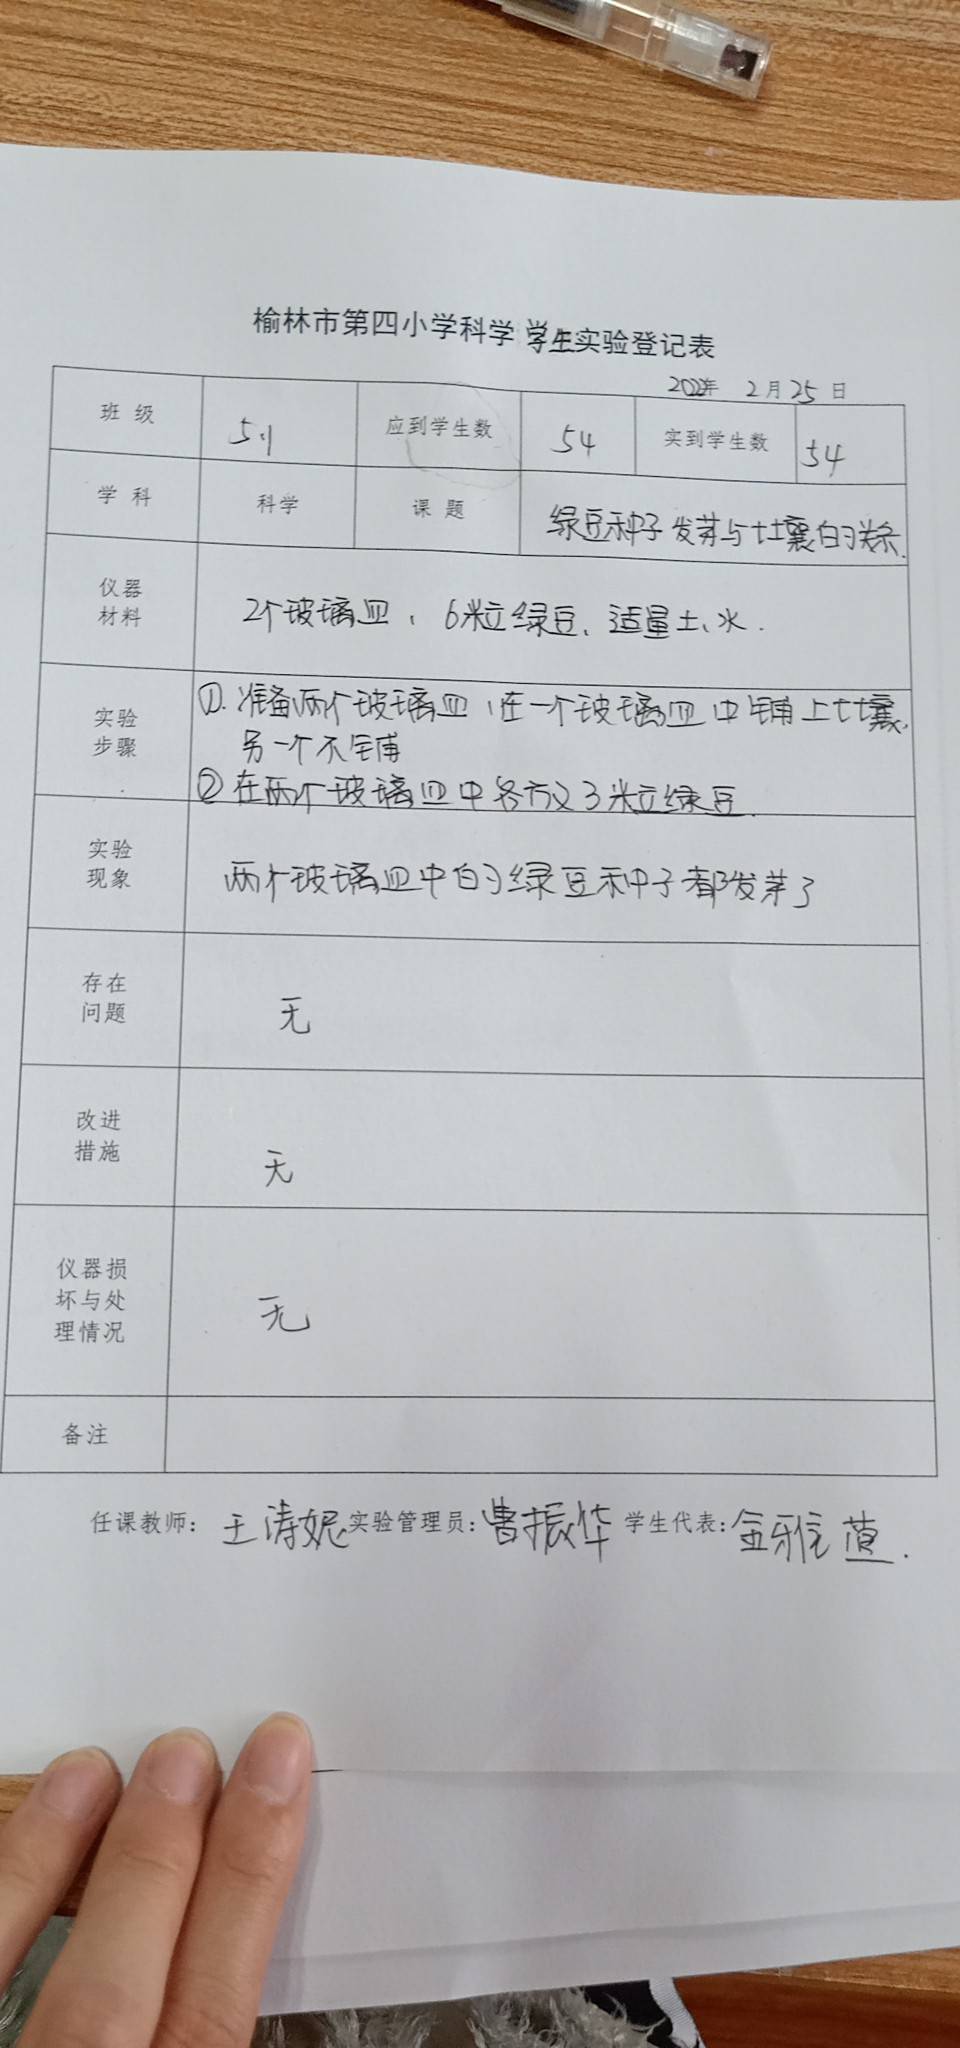 榆林市第四小学科学学生实验登记表
2022年 2月25日
班 级 5.1 应到学生数 54 实到学生数 54
学 科 科学 课 题 绿豆种子发芽与土壤的关系.
仪器
材料
2个玻璃皿、6粒绿豆、适量土、水.
实验
步骤
①.准备两个玻璃皿,在一个玻璃皿中铺上土壤,
另一个不铺
②在两个玻璃皿中各放3粒绿豆.
实验
现象
两个玻璃皿中的绿豆种子都发芽了
存在
问题
无
改进
措施
无
仪器损
坏与处
理情况
无
备注
任课教师: 王涛妮 实验管理员: 曹振华 学生代表: 金雅萱.